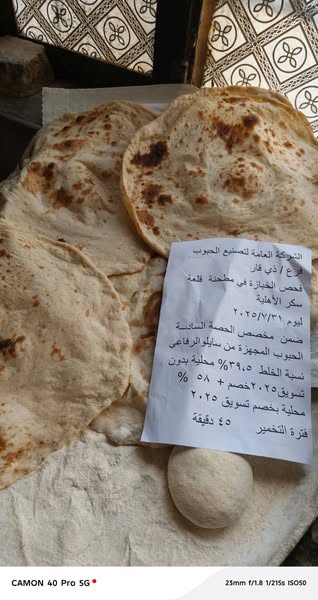 الشركة العامة لتصنيع الحبوب
فرع / ذي قار
فحص الخبازة في مطحنة قلعة
سكر الأهلية
ليوم ٢٠٢٥/٧/٣١
ضمن مخصص الحصة السادسة
الحبوب المجهزة من سايلو الرفاعي
نسبة الخلط ٣٩.٥% محلية بدون
تسويق ٢٠٢٥ خصم + ٥٨ %
محلية بخصم تسويق ٢٠٢٥
فترة التخمير ٤٥ دقيقة
CAMON 40 Pro 5G
23mm f/1.8 1/215s ISO50